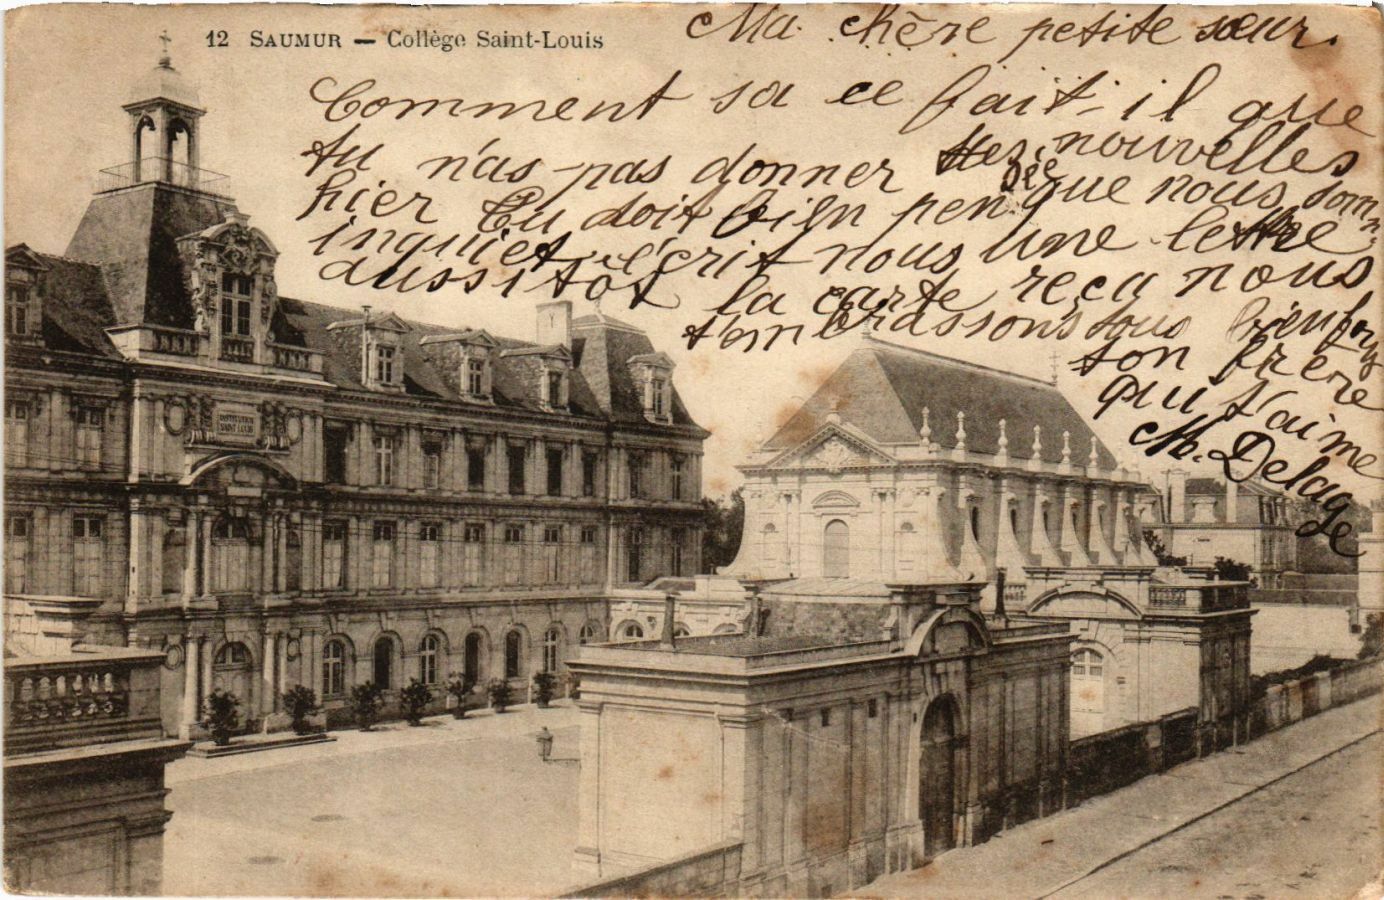 12 SAUMUR — Collège Saint-Louis
Ma chère petite sœur.
Comment sa ce fait-il que
tu n'as pas donner des nouvelles
hier Tu doit bien pensée que nous somm
inquiet l'écrit nous une lettre
aussitôt la carte reça nous
t'embrassons tous bien fort
ton frère
qui t'aime
M. Delage
INSTITUTION
SAINT LOUIS